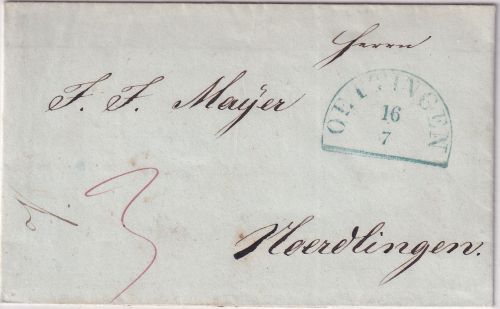 Herrn
J. F. Mayer
OETTINGEN
16
7
3
Noerdlingen.